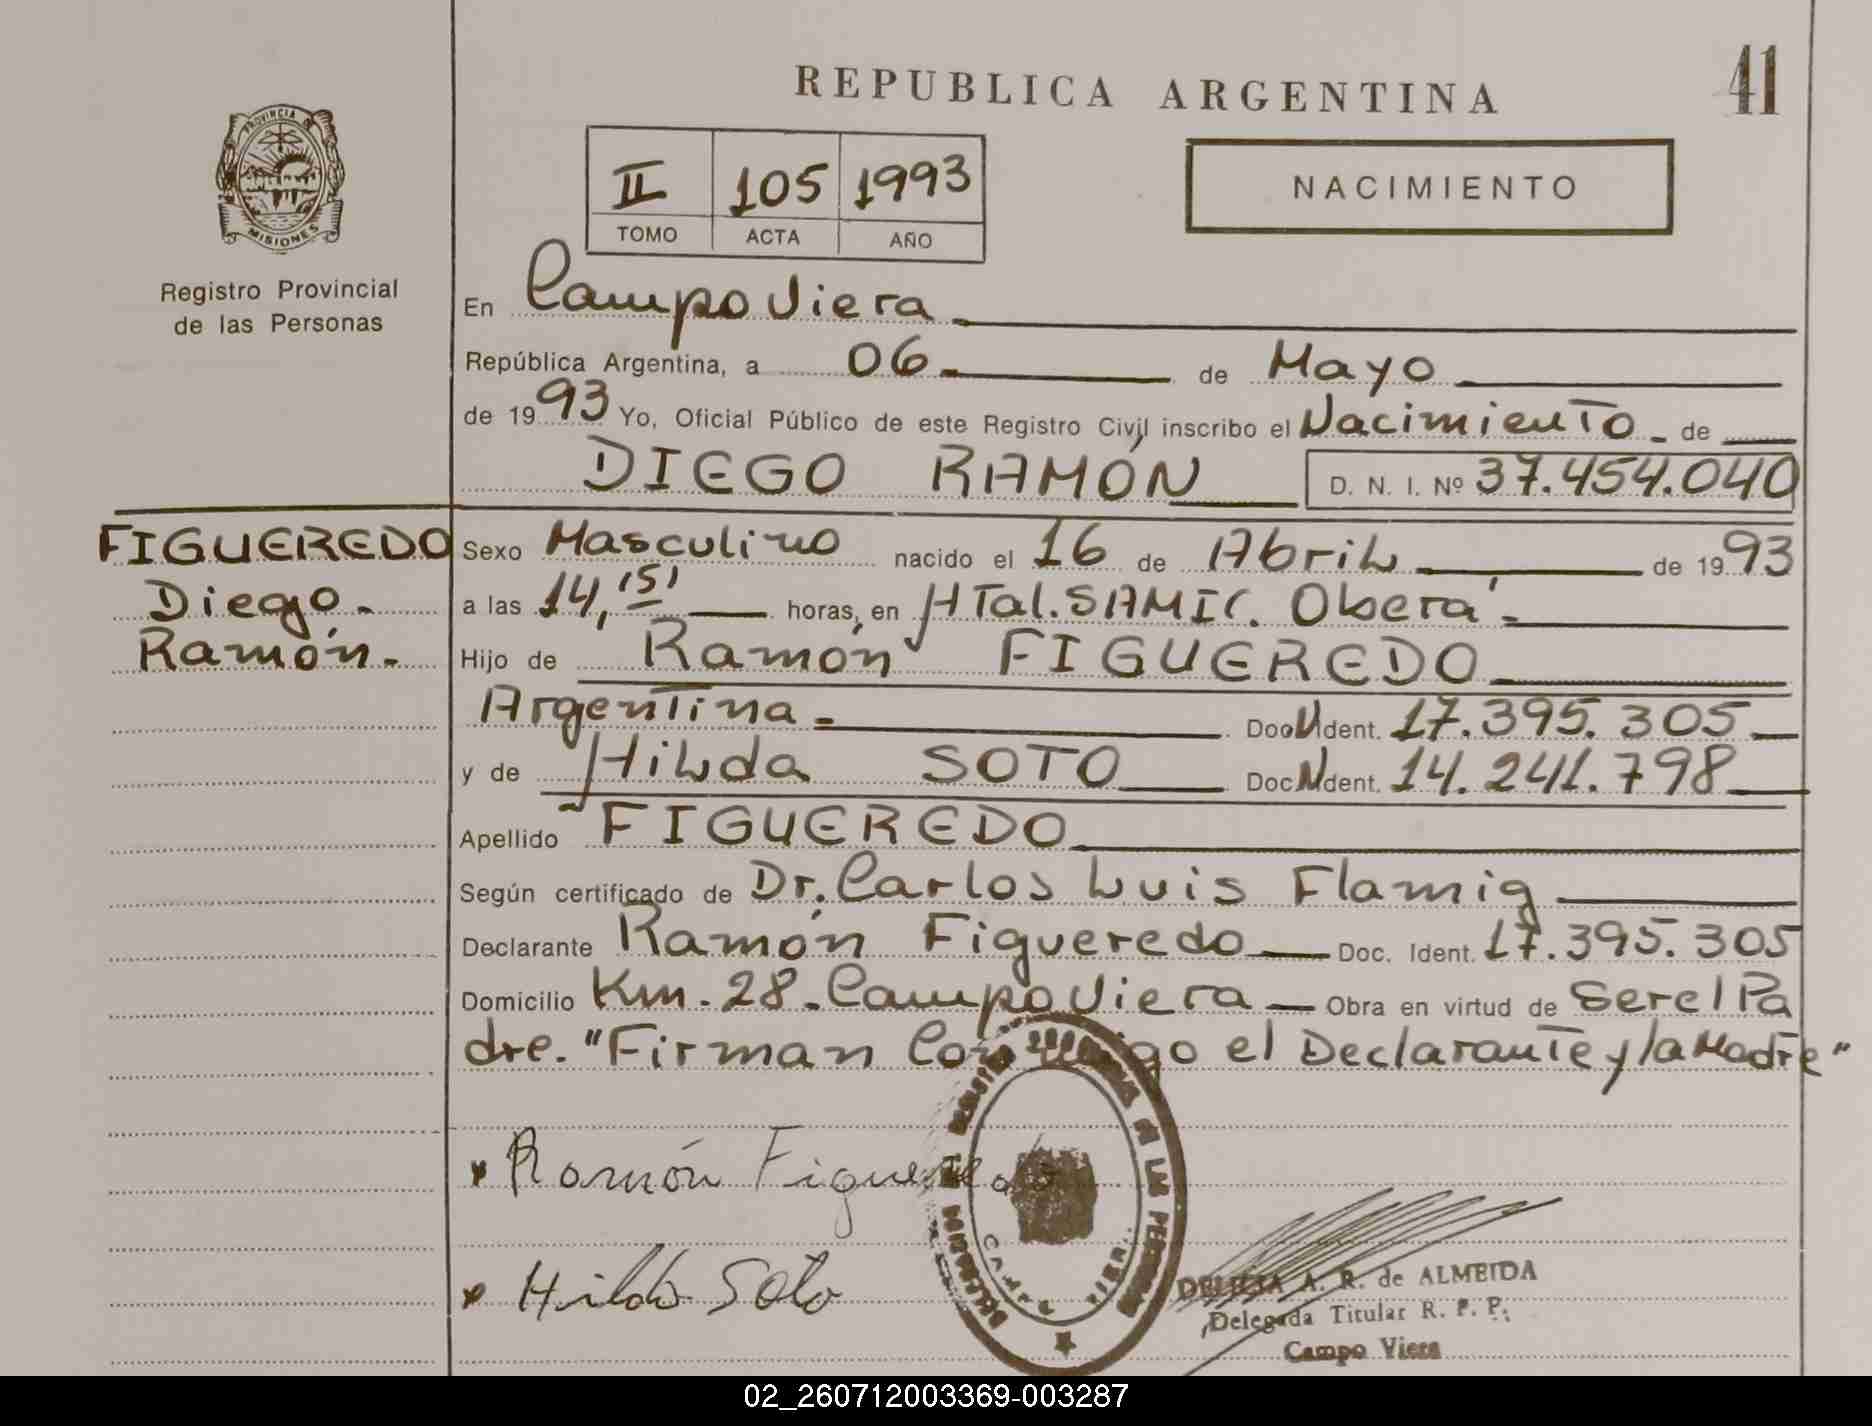 REPUBLICA ARGENTINA
41
PROVINCIA DE
MISIONES
Registro Provincial
de las Personas
II 105 1993
TOMO ACTA AÑO
NACIMIENTO
En Campo Viera
República Argentina, a 06 de Mayo
de 1993 Yo, Oficial Público de este Registro Civil inscribo el Nacimiento de
DIEGO RAMÓN D. N. I. Nº 37.454.040
FIGUEREDO
Diego
Ramón
Sexo Masculino nacido el 16 de Abril de 1993
a las 14,15' horas, en HTal. SAMIC. Oberá
Hijo de Ramón FIGUEREDO
Argentina Doc. Ident. 17.395.305
y de Hilda SOTO Doc. Ident. 14.241.798
Apellido FIGUEREDO
Según certificado de Dr. Carlos Luis Flamig
Declarante Ramón Figueredo Doc. Ident. 17.395.305
Domicilio Km. 28. Campo Viera Obra en virtud de Ser el Pa
dre. "Firman Conmigo el Declarante y la Madre"
Ramón Figueredo
Hilda Soto
DELICIA A. R. de ALMEIDA
Delegada Titular R. P. P.
Campo Viera
02_260712003369-003287